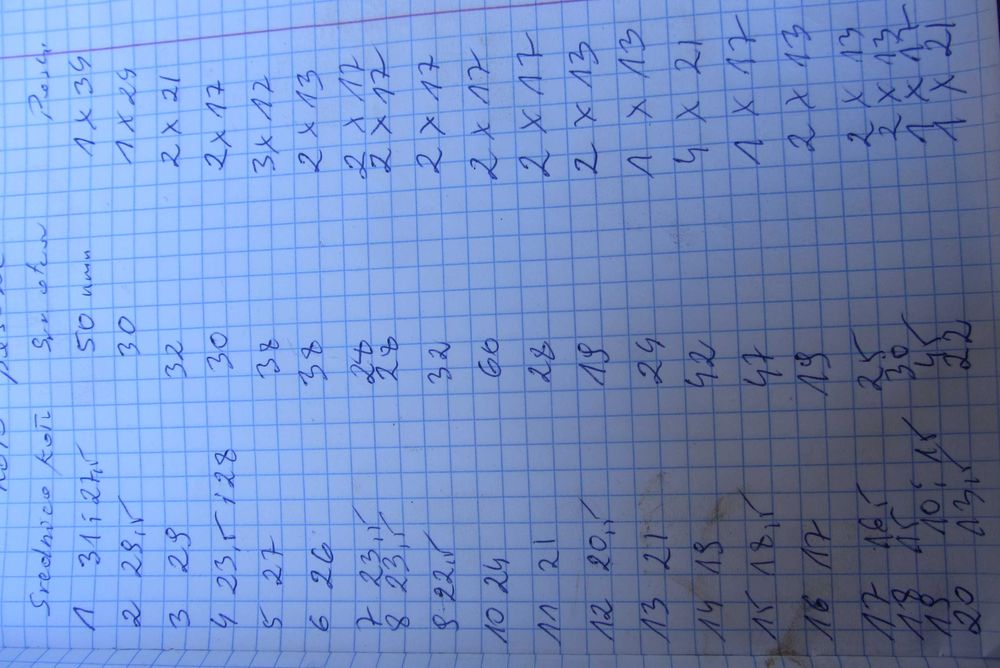 Srednica kół
1 31 i 27,5 50 mm 1 x 39
2 29,5 30 1 x 29
3 29 32 2 x 21
4 23,5 i 28 30 2 x 17
5 27 38 3 x 17
6 26 38 2 x 13
7 23,5 28 2 x 17
8 23,5 28 2 x 17
9 22,5 32 2 x 17
10 24 60 2 x 17
11 21 28 2 x 17
12 20,5 19 2 x 13
13 21 24 1 x 13
14 19 42 4 x 21
15 18,5 47 1 x 17
16 17 19 2 x 13
17 16,5 25 2 x 13
18 15 30 2 x 13
19 10 i 15 45 1 x 17
20 13,5 22 1 x 21